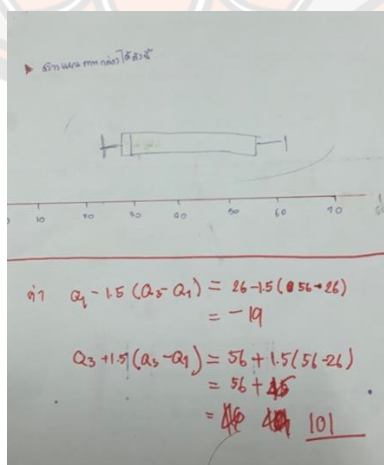 สร้างแผนภาพกล่องได้ดังนี้
0 10 20 30 40 50 60 70 8
ค่า Q₁ - 1.5 (Q₃ - Q₁) = 26 - 1.5 (56 - 26)
= -19
Q₃ + 1.5 (Q₃ - Q₁) = 56 + 1.5 (56 - 26)
= 56 + 45
= 101